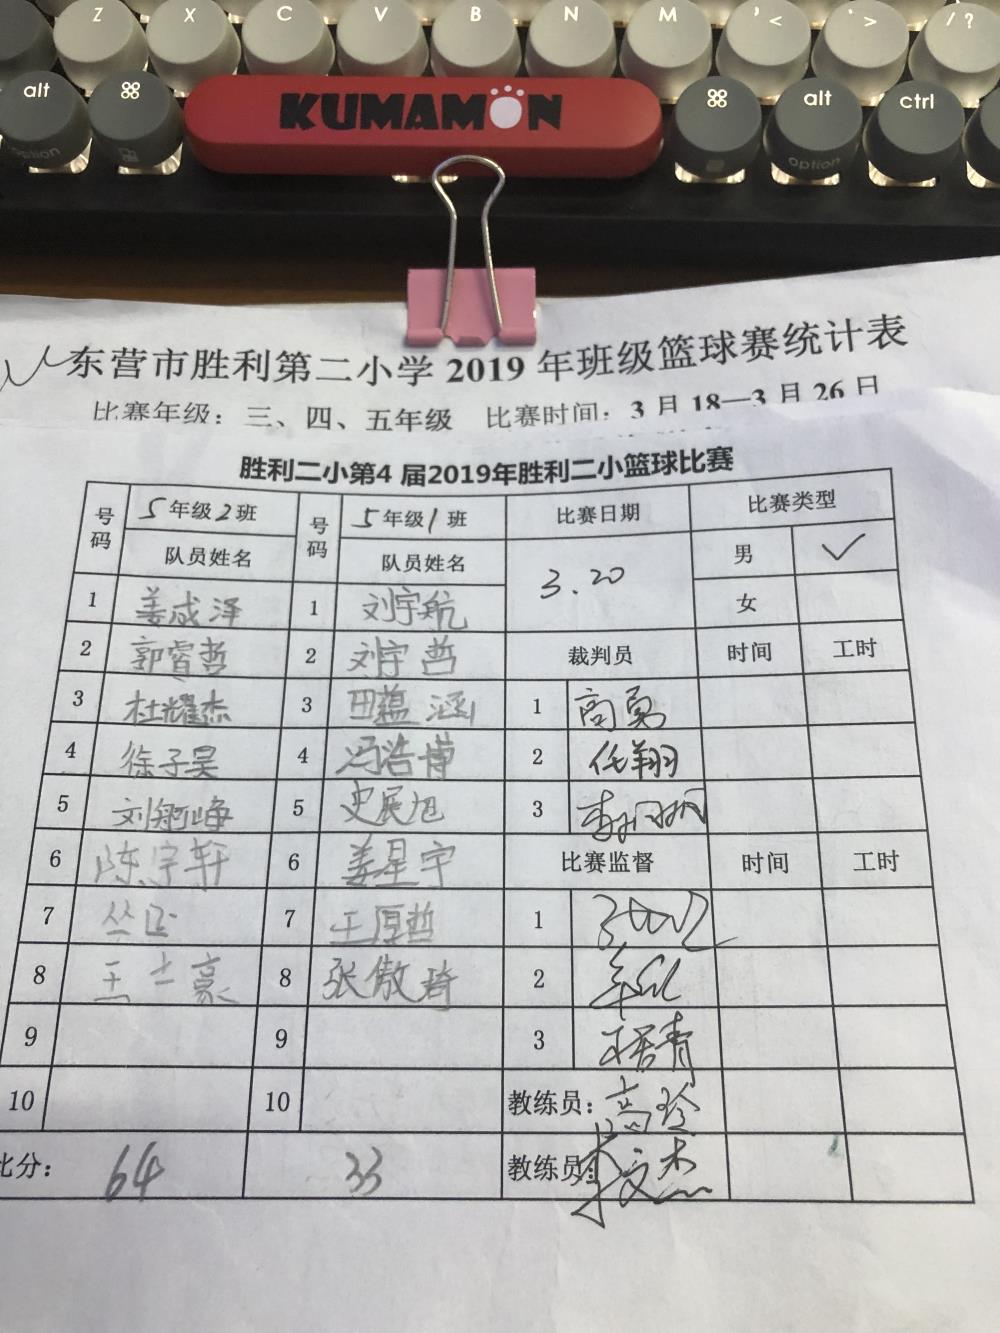 Z X C V B N M , < . > / ?
alt ⌘ KUMAMON ⌘ alt ctrl
option option
东营市胜利第二小学 2019 年班级篮球赛统计表
比赛年级：三、四、五年级 比赛时间：3 月 18—3 月 26 日
胜利二小第4 届2019年胜利二小篮球比赛
号码 5年级2班 号码 5年级1班 比赛日期 比赛类型
队员姓名 队员姓名 3.20 男 ✓
1 姜成泽 1 刘宇航 女
2 郭睿哲 2 刘宇哲 裁判员 时间 工时
3 杜耀杰 3 田蕴涵 1 高勇
4 徐子昊 4 冯浩博 2 任翔
5 刘 峥 5 史展旭 3 李
6 陈宇轩 6 姜星宇 比赛监督 时间 工时
7 丛 7 王厚哲 1
8 王士豪 8 张傲琦 2
9 9 3 青
10 10 教练员：高玲
比分： 64 33 教练员 李文杰